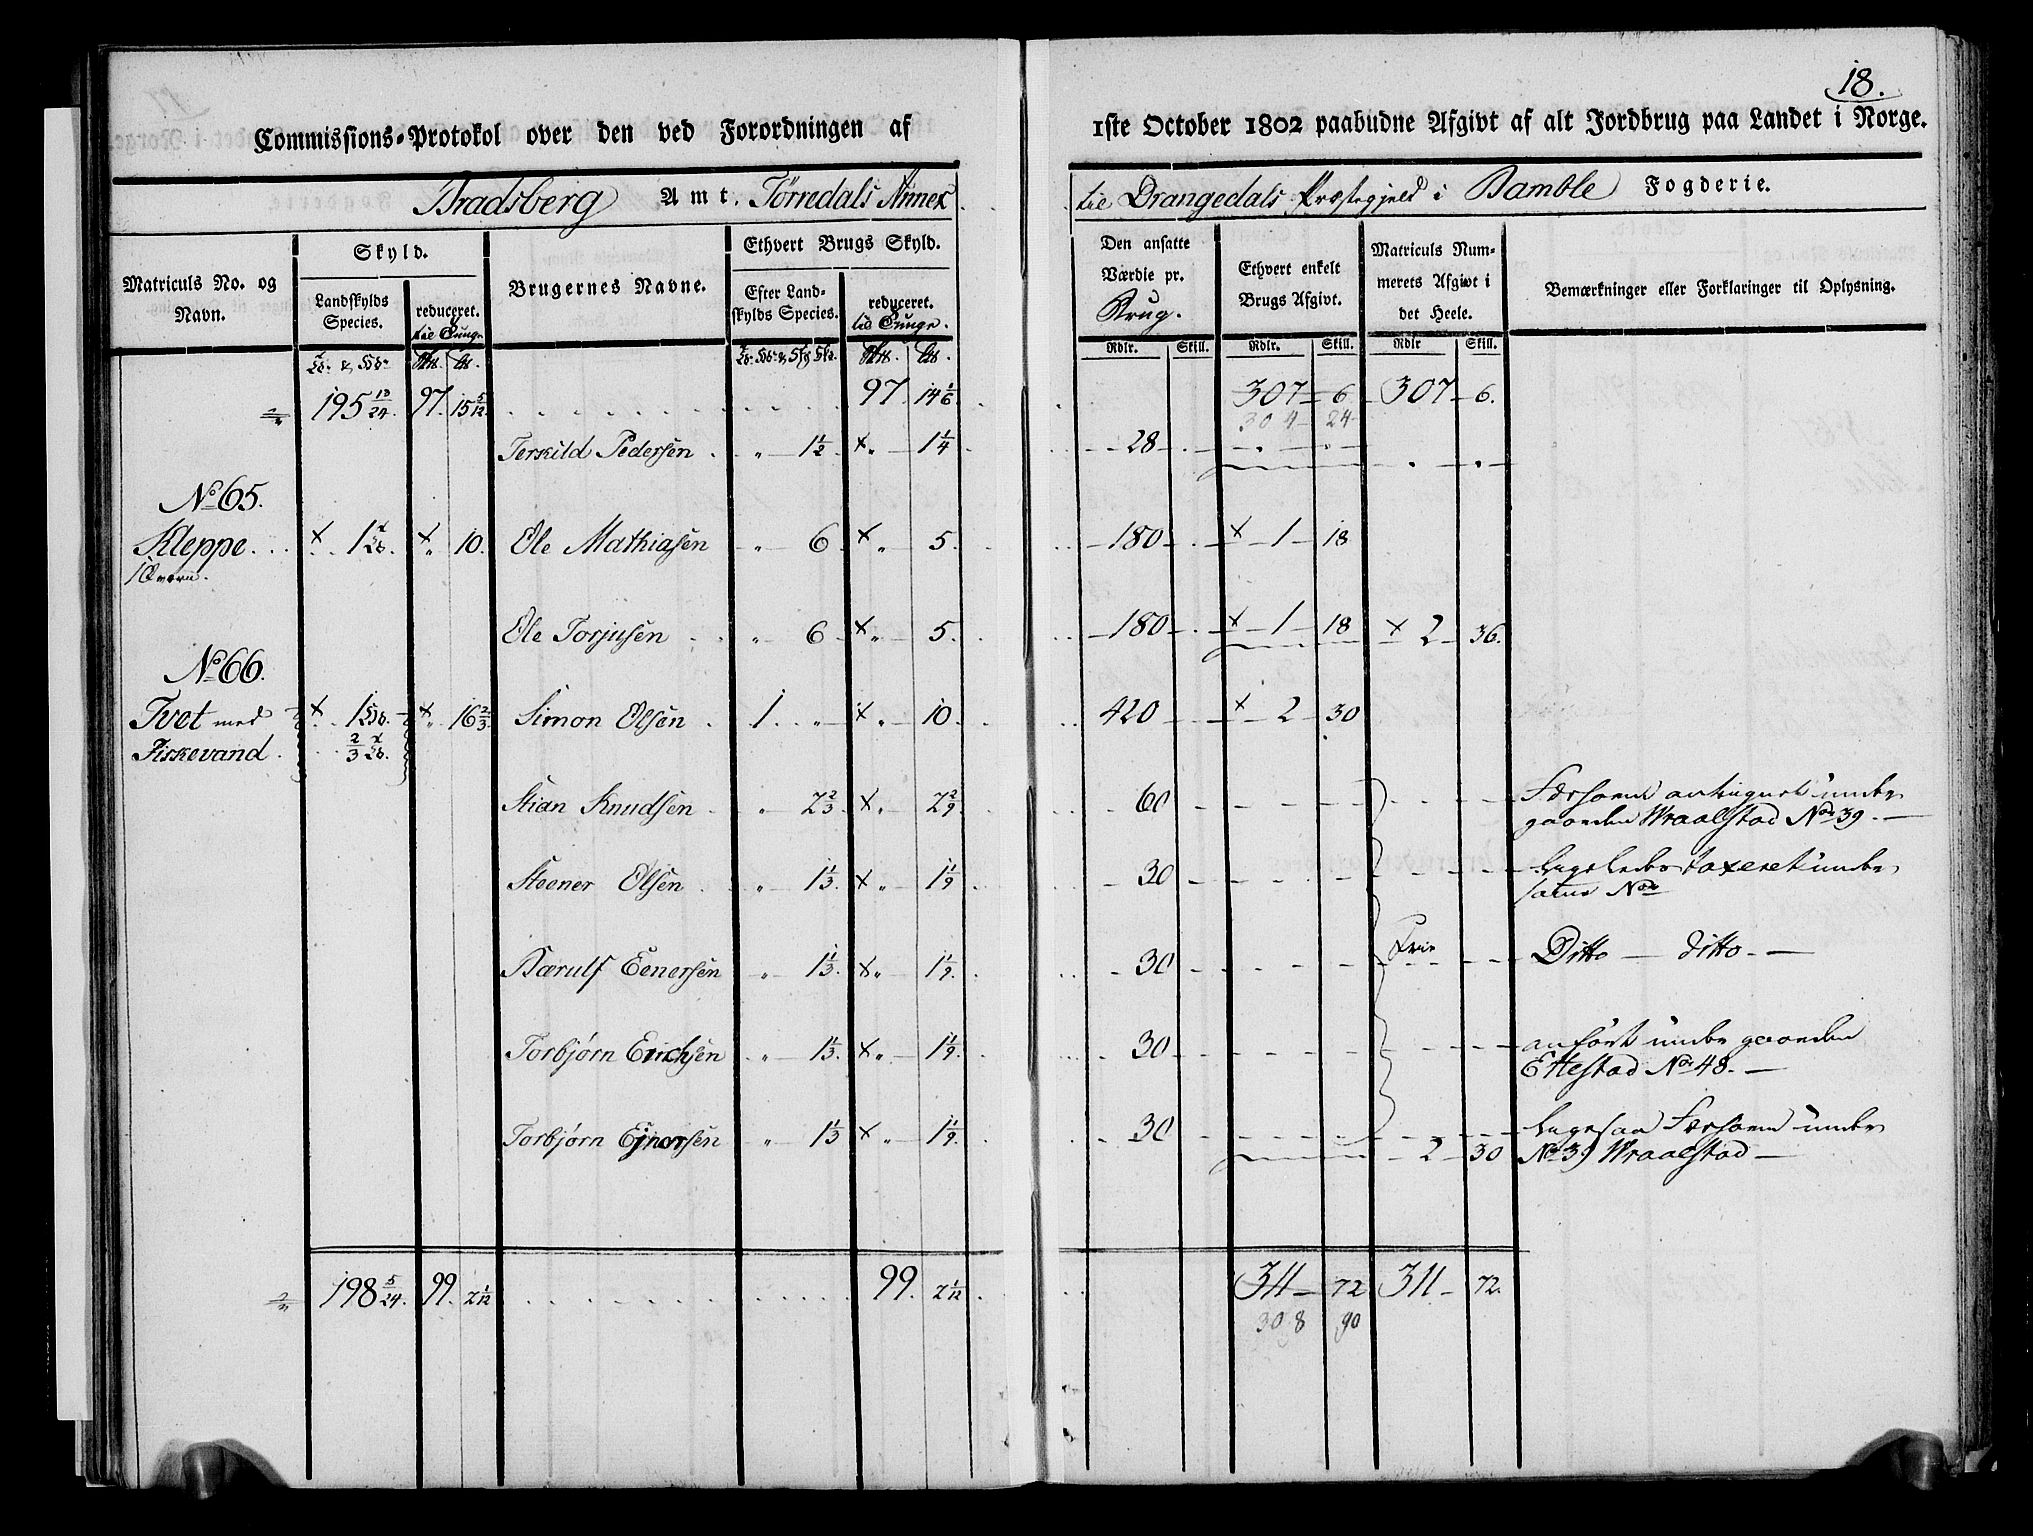 18.
Commissions-Protokol over den ved Forordningen af 1ste October 1802 paabudne Afgivt af alt Jordbrug paa Landet i Norge.
Bradsberg Amt. Tørredals Annex til Drangedals Præstegjeld i Bamble Fogderie.
Matriculs No. og Navn.
Skyld.
Landskylds Species.
reduceret. til Tunge
Brugernes Navne.
Ethvert Brugs Skyld.
Efter Landskylds Species.
reduceret. til Tunge.
Den ansatte Værdie pr. Brug.
Ethvert enkelt Brugs Afgivt.
Matriculs Nummerets Afgivt i det Heele.
Bemærkninger eller Forklaringer til Oplysning.
Rdlr. Skill. Rdlr. Skill. Rdlr Skill.
195 13/24. 97. 15 5/12. 97. 14 1/6. 307 6 307 6.
304 24
Terkild Pedersen " 1 1/2 x " 1 1/4 28
No 65.
Kleppe x 1 x " 10. Ole Mathiasen " 6 x " 5. 180 x 1 18
1 Qværn.
Ole Torjusen " 6 x " 5. 180 x 1 18 x 2 36.
No 66.
Tvet med x 1 x " 16 2/3 Simon Olsen 1 " x " 10. 420 x 2 30
Fiskevand 2/3
Stian Knudsen " 2 2/3 x " 2 2/9 60
gaarden Wraalstad No 39.
Steener Olsen " 1 1/3. x " 1 1/9 30 taxeret under
No
Bærulf Eenersen " 1 1/3. x " 1 1/9. 30 Frie Ditto — ditto. —
Torbjørn Erichsen " 1 1/3. x " 1 1/9. 30 anført under gaarden
Ettestad No 48. —
Torbjørn Ejnersen " 1 1/3 x " 1 1/9. 30 under
2 30 No 39 Wraalstad —
198 5/24. 99. 2 1/12 99. 2 1/12 311 72 311 72.
308 90